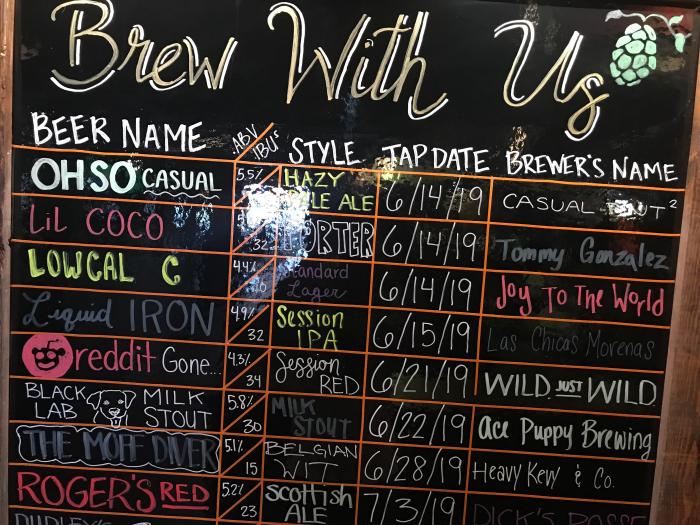 Brew With Us
BEER NAME ABV IBU's STYLE TAP DATE BREWER'S NAME
OH SO CASUAL 5.5% HAZY PALE ALE 6/14/19 CASUAL
LiL COCO 32 PORTER 6/14/19 Tommy Gonzalez
LOWCAL C 4.4% Standard Lager 6/14/19 Joy To The World
Liquid IRON 4.9% 32 Session IPA 6/15/19 Las Chicas Morenas
reddit Gone... 4.3% 34 Session RED 6/21/19 WILD JUST WILD
BLACK LAB MILK STOUT 5.8% 30 MILK STOUT 6/22/19 Ace Puppy Brewing
THE MOFF DIVER 5.1% 15 BELGIAN WIT 6/28/19 Heavy Kevy & Co.
ROGER'S RED 5.2% 23 SCOTTISH ALE 7/3/19 DICK'S POSSE
DUDLEY'S